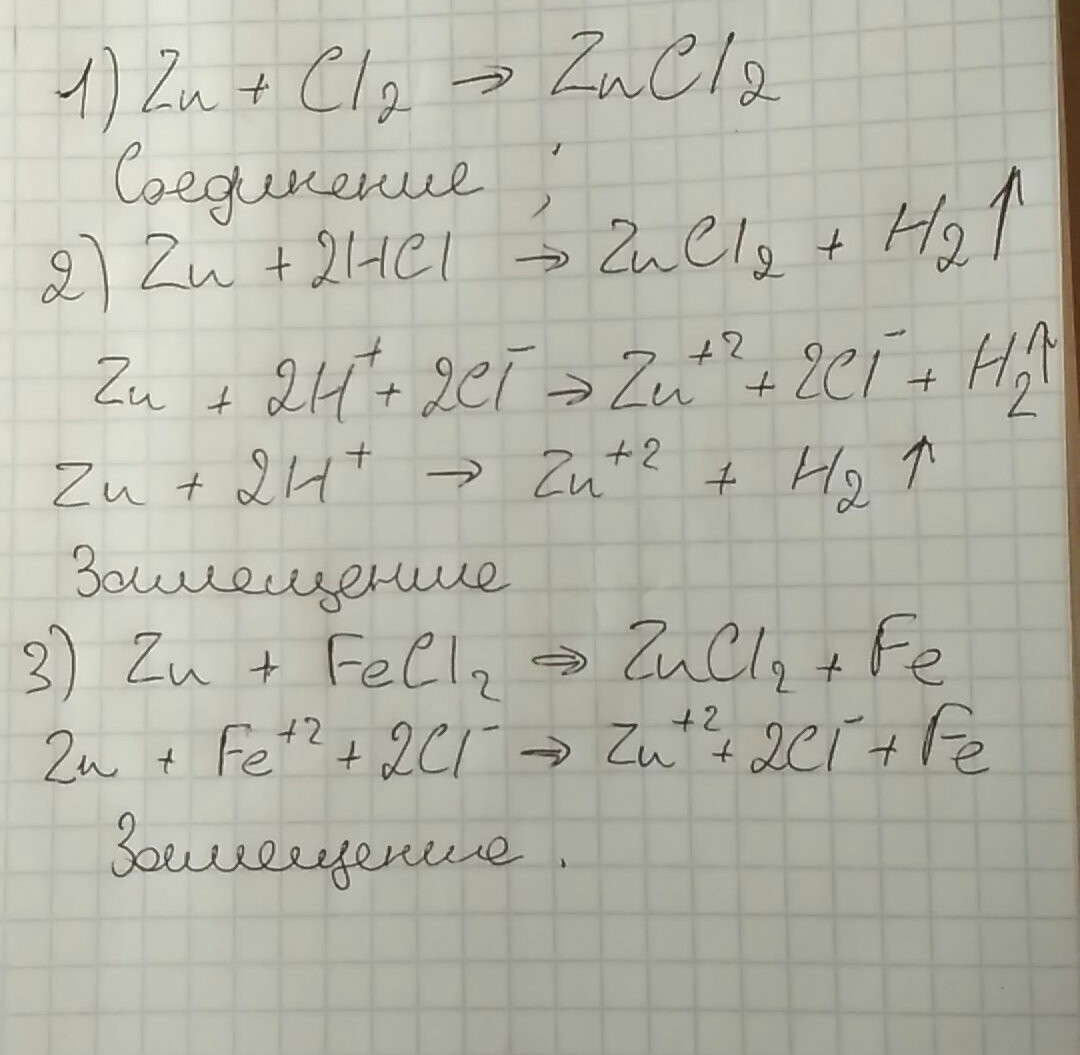 1) Zn + Cl₂ → ZnCl₂
Соединение ;
2) Zn + 2HCl → ZnCl₂ + H₂↑
Zn + 2H⁺ + 2Cl⁻ → Zn⁺² + 2Cl⁻ + H₂↑
Zn + 2H⁺ → Zn⁺² + H₂↑
Замещение
3) Zn + FeCl₂ ⇒ ZnCl₂ + Fe
Zn + Fe⁺² + 2Cl⁻ ⇒ Zn⁺² + 2Cl⁻ + Fe
Замещение.